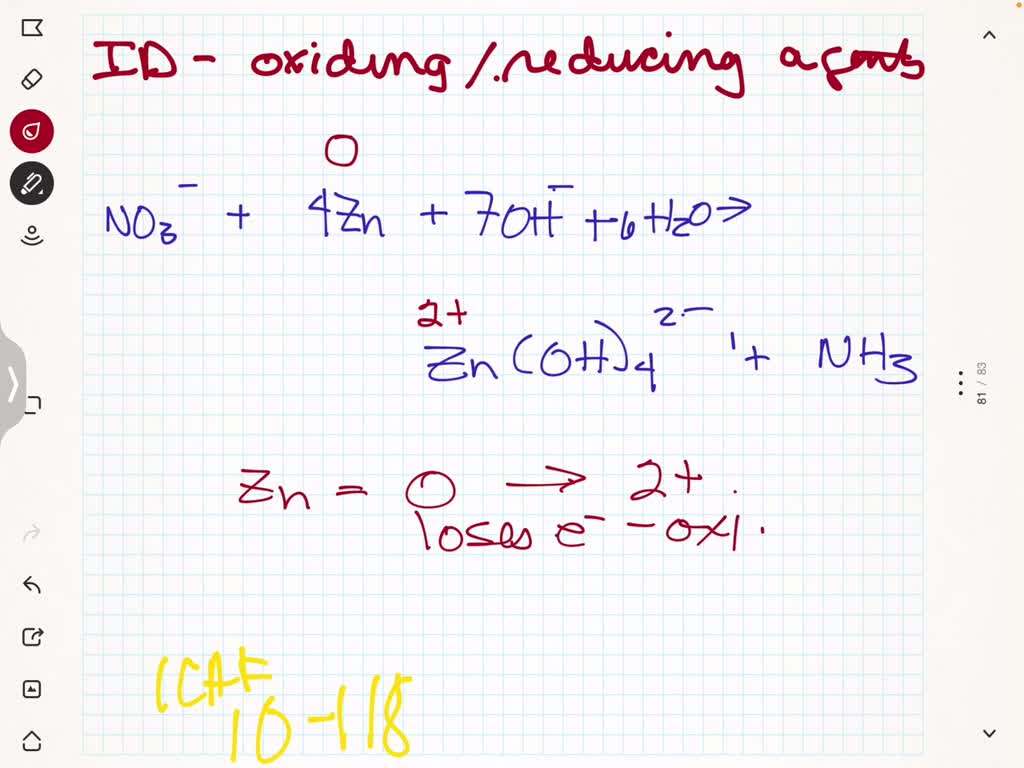 ID - oxiding / reducing agents
0
NO3⁻ + 4Zn + 7OH⁻ + 6H2O →
2+
Zn(OH)4²⁻ + NH3
Zn = 0 → 2+
loses e⁻ - oxi.
10-118
81 / 83